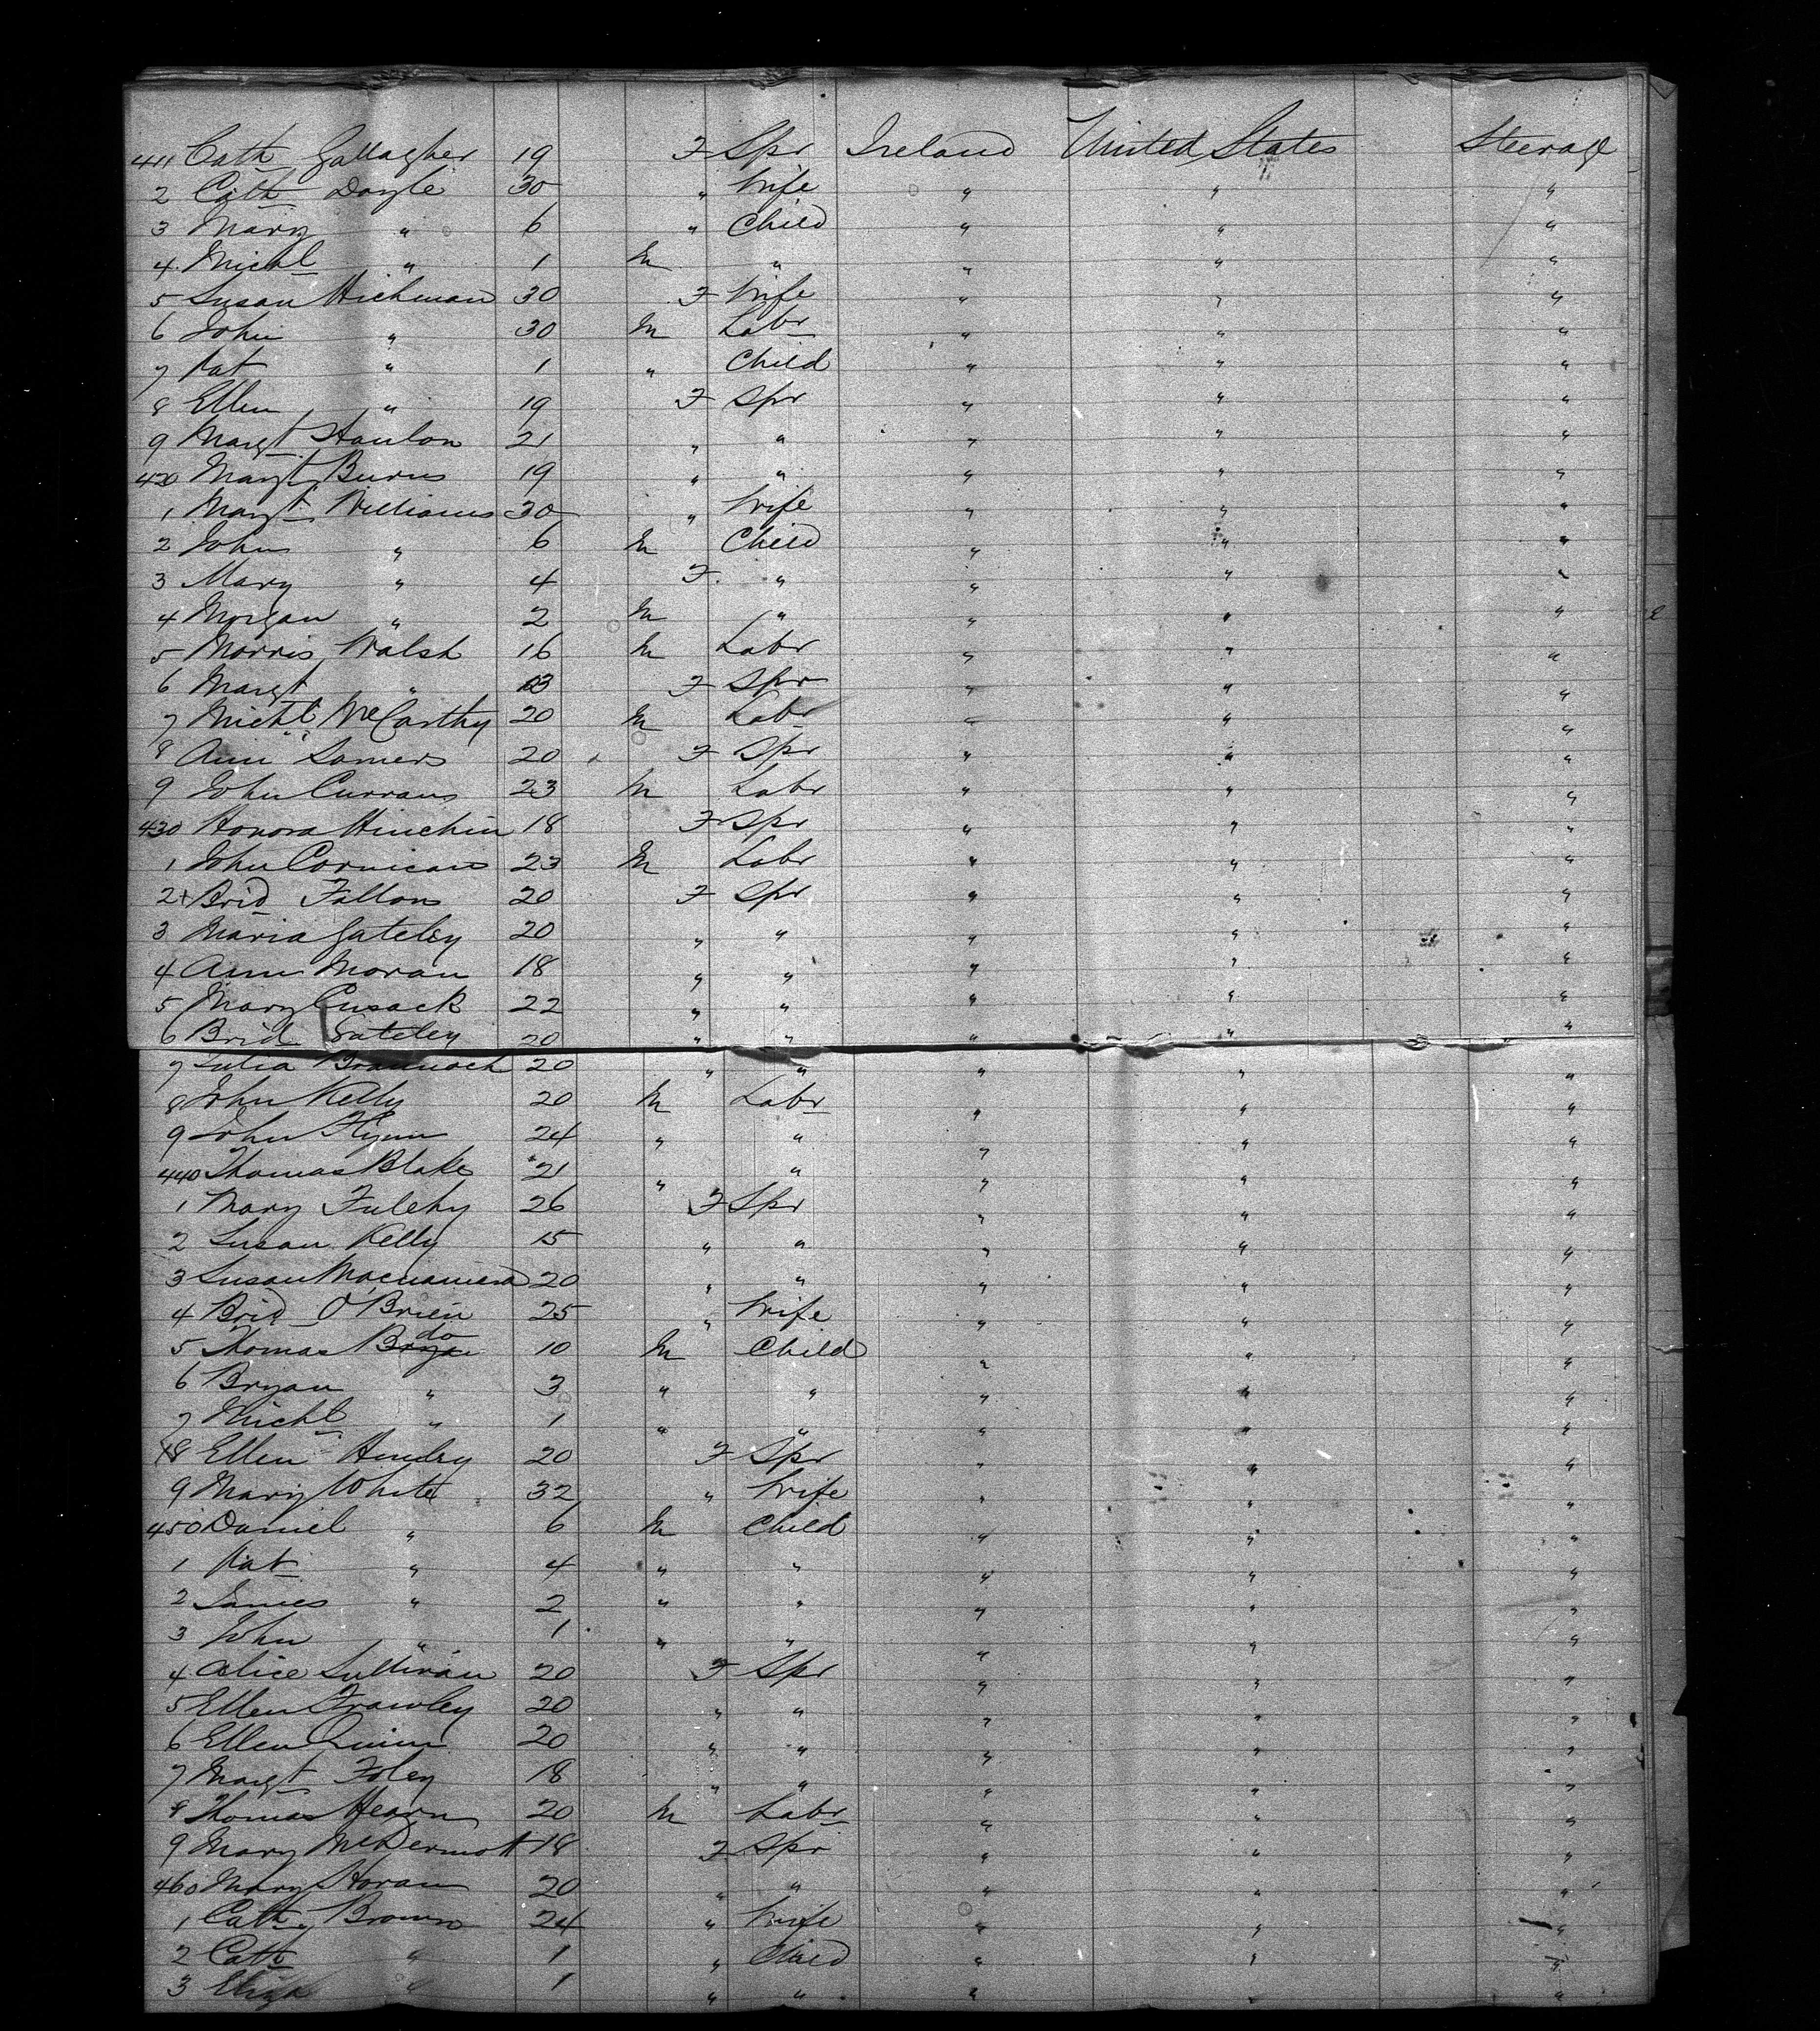 411 Cath Gallagher 19 F Spr Ireland United States Steerage
2 Cath Doyle 30 " Wife " " "
3 Mary " 6 " Child " " "
4 Michl " 1 M " " " "
5 Susan Hickman 30 F Wife " " "
6 John " 30 M Labr " " "
7 Pat " 1 " Child " " "
8 Ellen " 19 F Spr " " "
9 Margt Hanlon 21 " " " " "
420 Margt Burns 19 " " " " "
1 Margt Williams 30 " Wife " " "
2 John " 6 M Child " " "
3 Mary " 4 F " " " "
4 Morgan " 2 M " " " "
5 Morris Walsh 16 M Labr " " "
6 Margt " 13 F Spr " " "
7 Michl McCarthy 20 M Labr " " "
8 Ann Somers 20 F Spr " " "
9 John Currans 23 M Labr " " "
430 Honora Hinchin 18 F Spr " " "
1 John Cornican 23 M Labr " " "
2 Brid Fallon 20 F Spr " " "
3 Maria Gateley 20 " " " " "
4 Ann Moran 18 " " " " "
5 Mary Cusack 22 " " " " "
6 Brid Gateley 20 " " " " "
7 Julia Brannack 20 " " " " "
8 John Kelly 20 M Labr " " "
9 John Flynn 24 " " " " "
440 Thomas Blake 21 " " " " "
1 Mary 26 F Spr " " "
2 Susan Kelly 15 " " " " "
3 Susan Macnamera 20 " " " " "
4 Brid O'Brien 25 " Wife " " "
5 Thomas do 10 M Child " " "
6 Bryan " 3 " " " " "
7 Michl " 1 " " " " "
8 Ellen 20 F Spr " " "
9 Mary White 32 " Wife " " "
450 Daniel " 6 M Child " " "
1 Pat " 4 " " " " "
2 James " 2 " " " " "
3 John " 1 " " " " "
4 Alice Sullivan 20 F Spr " " "
5 Ellen Frawley 20 " " " " "
6 Ellen Quinn 20 " " " " "
7 Margt Foley 18 " " " " "
8 Thomas Hearn 20 M Labr " " "
9 Mary McDermott 18 F Spr " " "
460 Mary Horan 20 " " " " "
1 Cath Brown 24 " Wife " " "
2 Cath " 1 " Child " " "
3 Eliza " 1 " " " " "